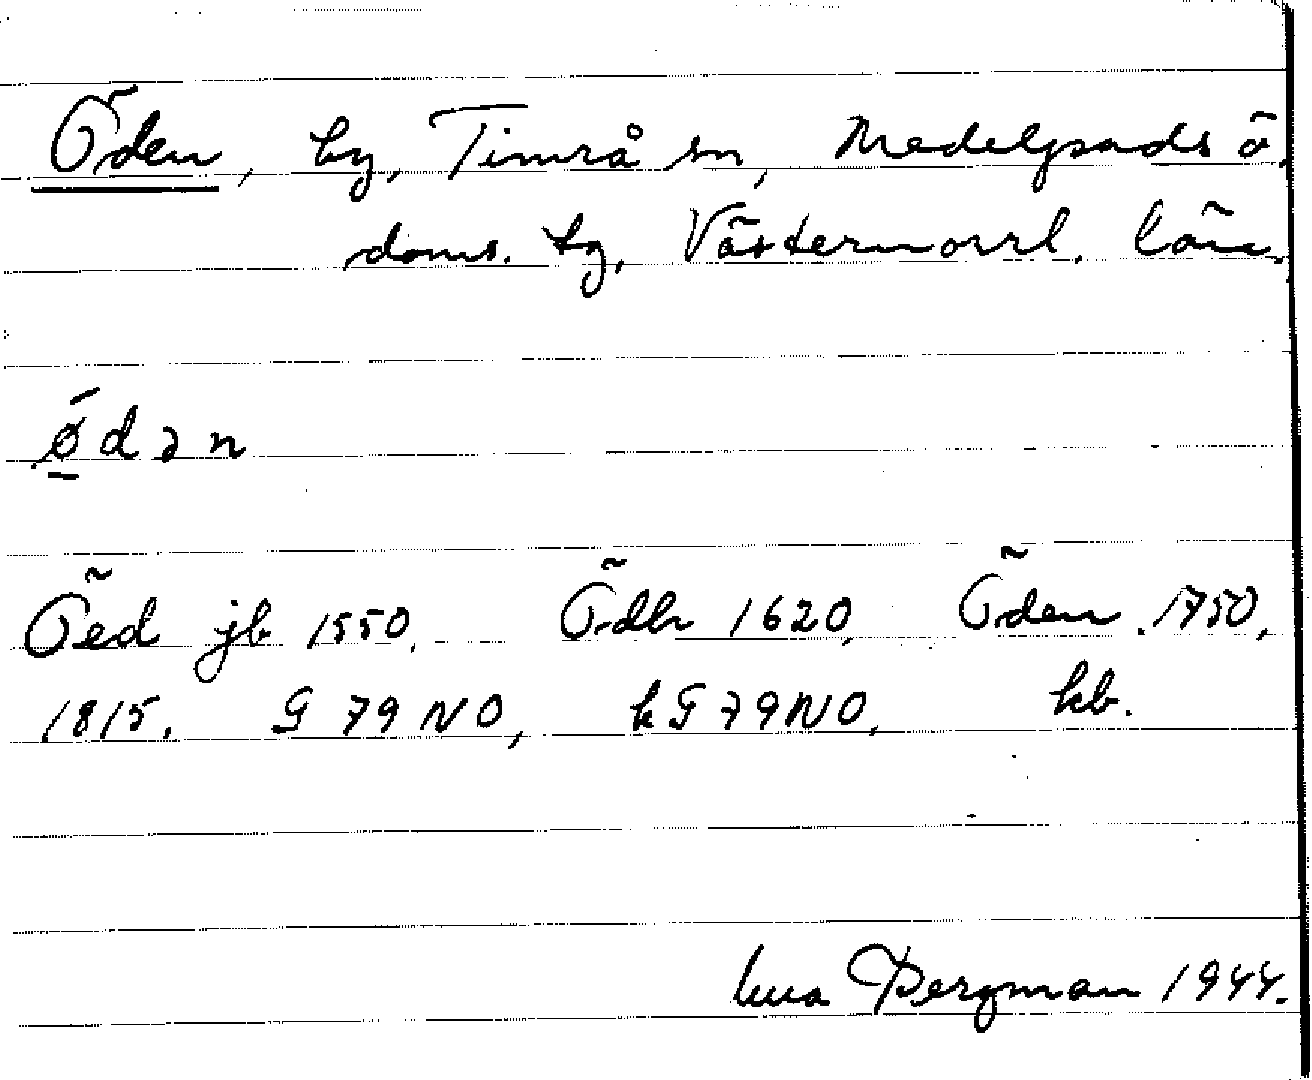 Öden, by, Timrå sn, Medelpads ö.
doms. tg, Västernorrl. län.
ǿdən
Öed jb 1550. Ödh 1620, Öden 1750,
1815. G 79 NO, kG 79 NO, kb.
Bergman 1944.